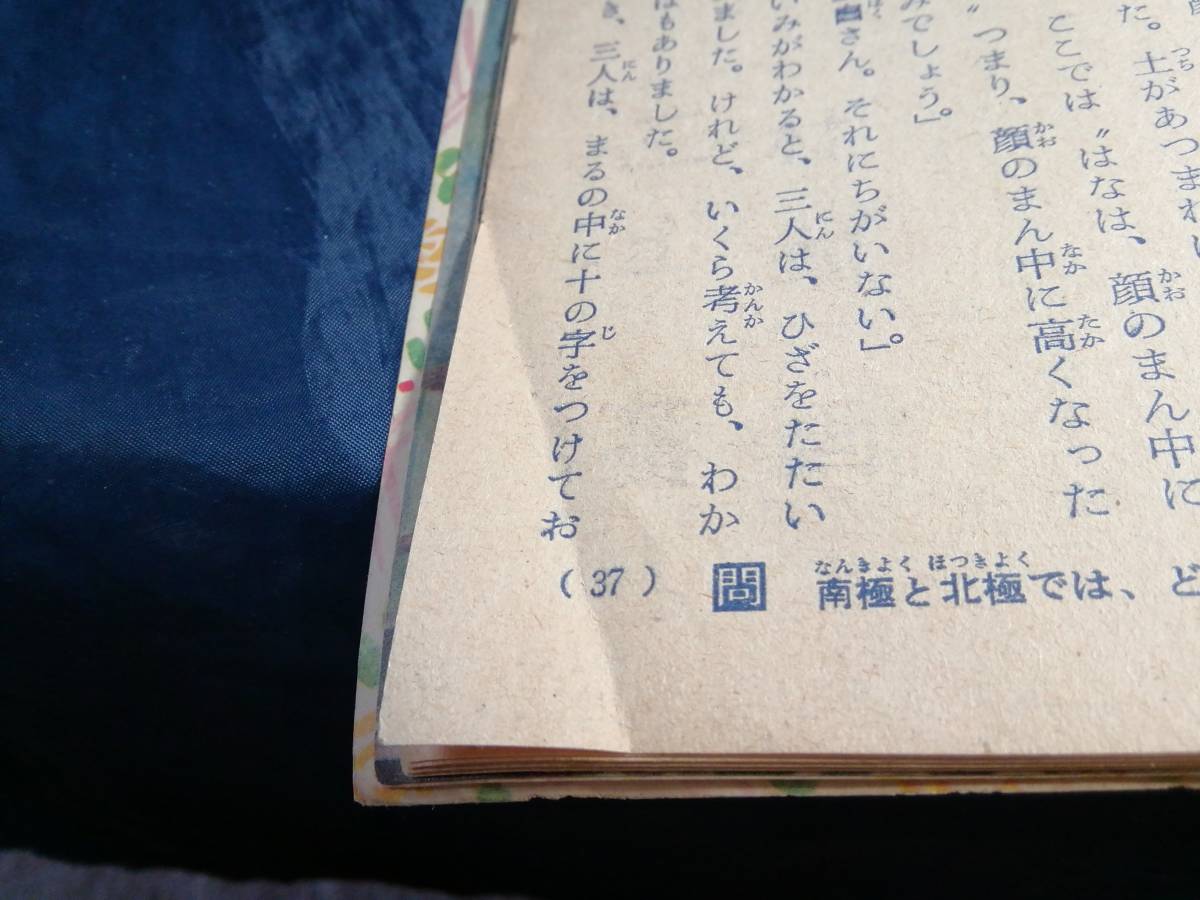 た。土があつまれ
ここでは〝はなは、顔のまん中に
〝つまり、顔のまん中に高くなった
みでしょう。」
さん。それにちがいない。」
いみがわかると、三人は、ひざをたたい
ました。けれど、いくら考えても、わか
はもありました。
き、三人は、まるの中に十の字をつけてお
(37) 問 南極と北極では、ど